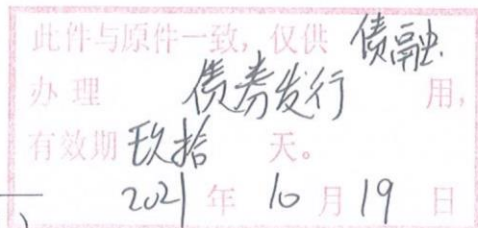 此件与原件一致，仅供 债融
办理 债券发行 用，
有效期 玖拾 天。
2021 年 10 月 19 日